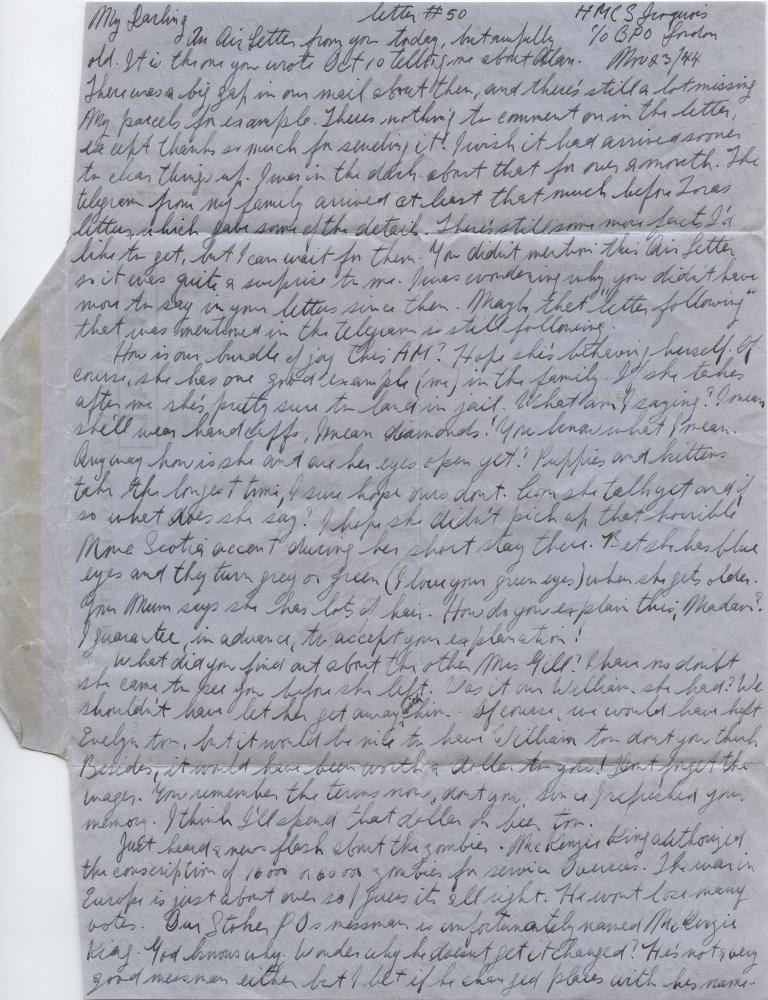 My Darling letter #50 HMCS Iroquois
An Air Letter from you today, but awfully c/o GPO London
old. It is the one you wrote Oct 10 telling me about Alan. Nov 23/44
There was a big gap in our mail about then, and there's still a lot missing
My parcels for example. There's nothing to comment on in the letter,
except thanks so much for sending it! I wish it had arrived sooner
to clear things up. I was in the dark about that for over a month. The
telegram from my family arrived at least that much before
letter, which gave some of the detail. There's still some more facts I'd
like to get, but I can wait for them. You didn't mention this Air Letter
so it was quite a surprise to me. I was wondering why you didn't have
more to say in your letters since then. Maybe that "letter following"
that was mentioned in the telegram is still following.
How is our bundle of joy this AM? Hope she's behaving herself. Of
course, she has one good example (me) in the family. If she takes
after me she's pretty sure to land in jail. What am I saying? I mean
she'll wear handcuffs, I mean diamonds! You know what I mean.
Anyway how is she and are her eyes open yet? Puppies and kittens
take the longest time, I sure hope ours dont. Can she talk yet and if
so what does she say? I hope she didn't pick up that horrible
Nova Scotia accent during her short stay there. Bet she has blue
eyes and they turn grey or green (I love your green eyes) when she gets older.
Your Mum says she has lots of hair. How do you explain this, Madam?
I guarantee, in advance, to accept your explanation!
What did you find out about the other Mrs Gill? I have no doubt
she came to see you before she left. Was it our William she had? We
shouldn't have let her get away with him. Of course we would have kept
Evelyn too, but it would be nice to have William too dont you think
Besides, it would have been worth a dollar to you! Dont forget the
wager. You remember the terms now, dont you, since I refreshed your
memory. I think I'll spend that dollar on beer too.
Just heard a news flash about the zombies. McKenzie King authorized
the conscription of 16000 or 60000 zombies for service Overseas. The war in
Europe is just about over so I guess its all right. He wont lose many
votes. Our Stoker POs messman is unfortunately named McKenzie
King. God knows why. Wonder why he doesnt get it changed? He's not a very
good messman either but I bet if he changed places with his name-